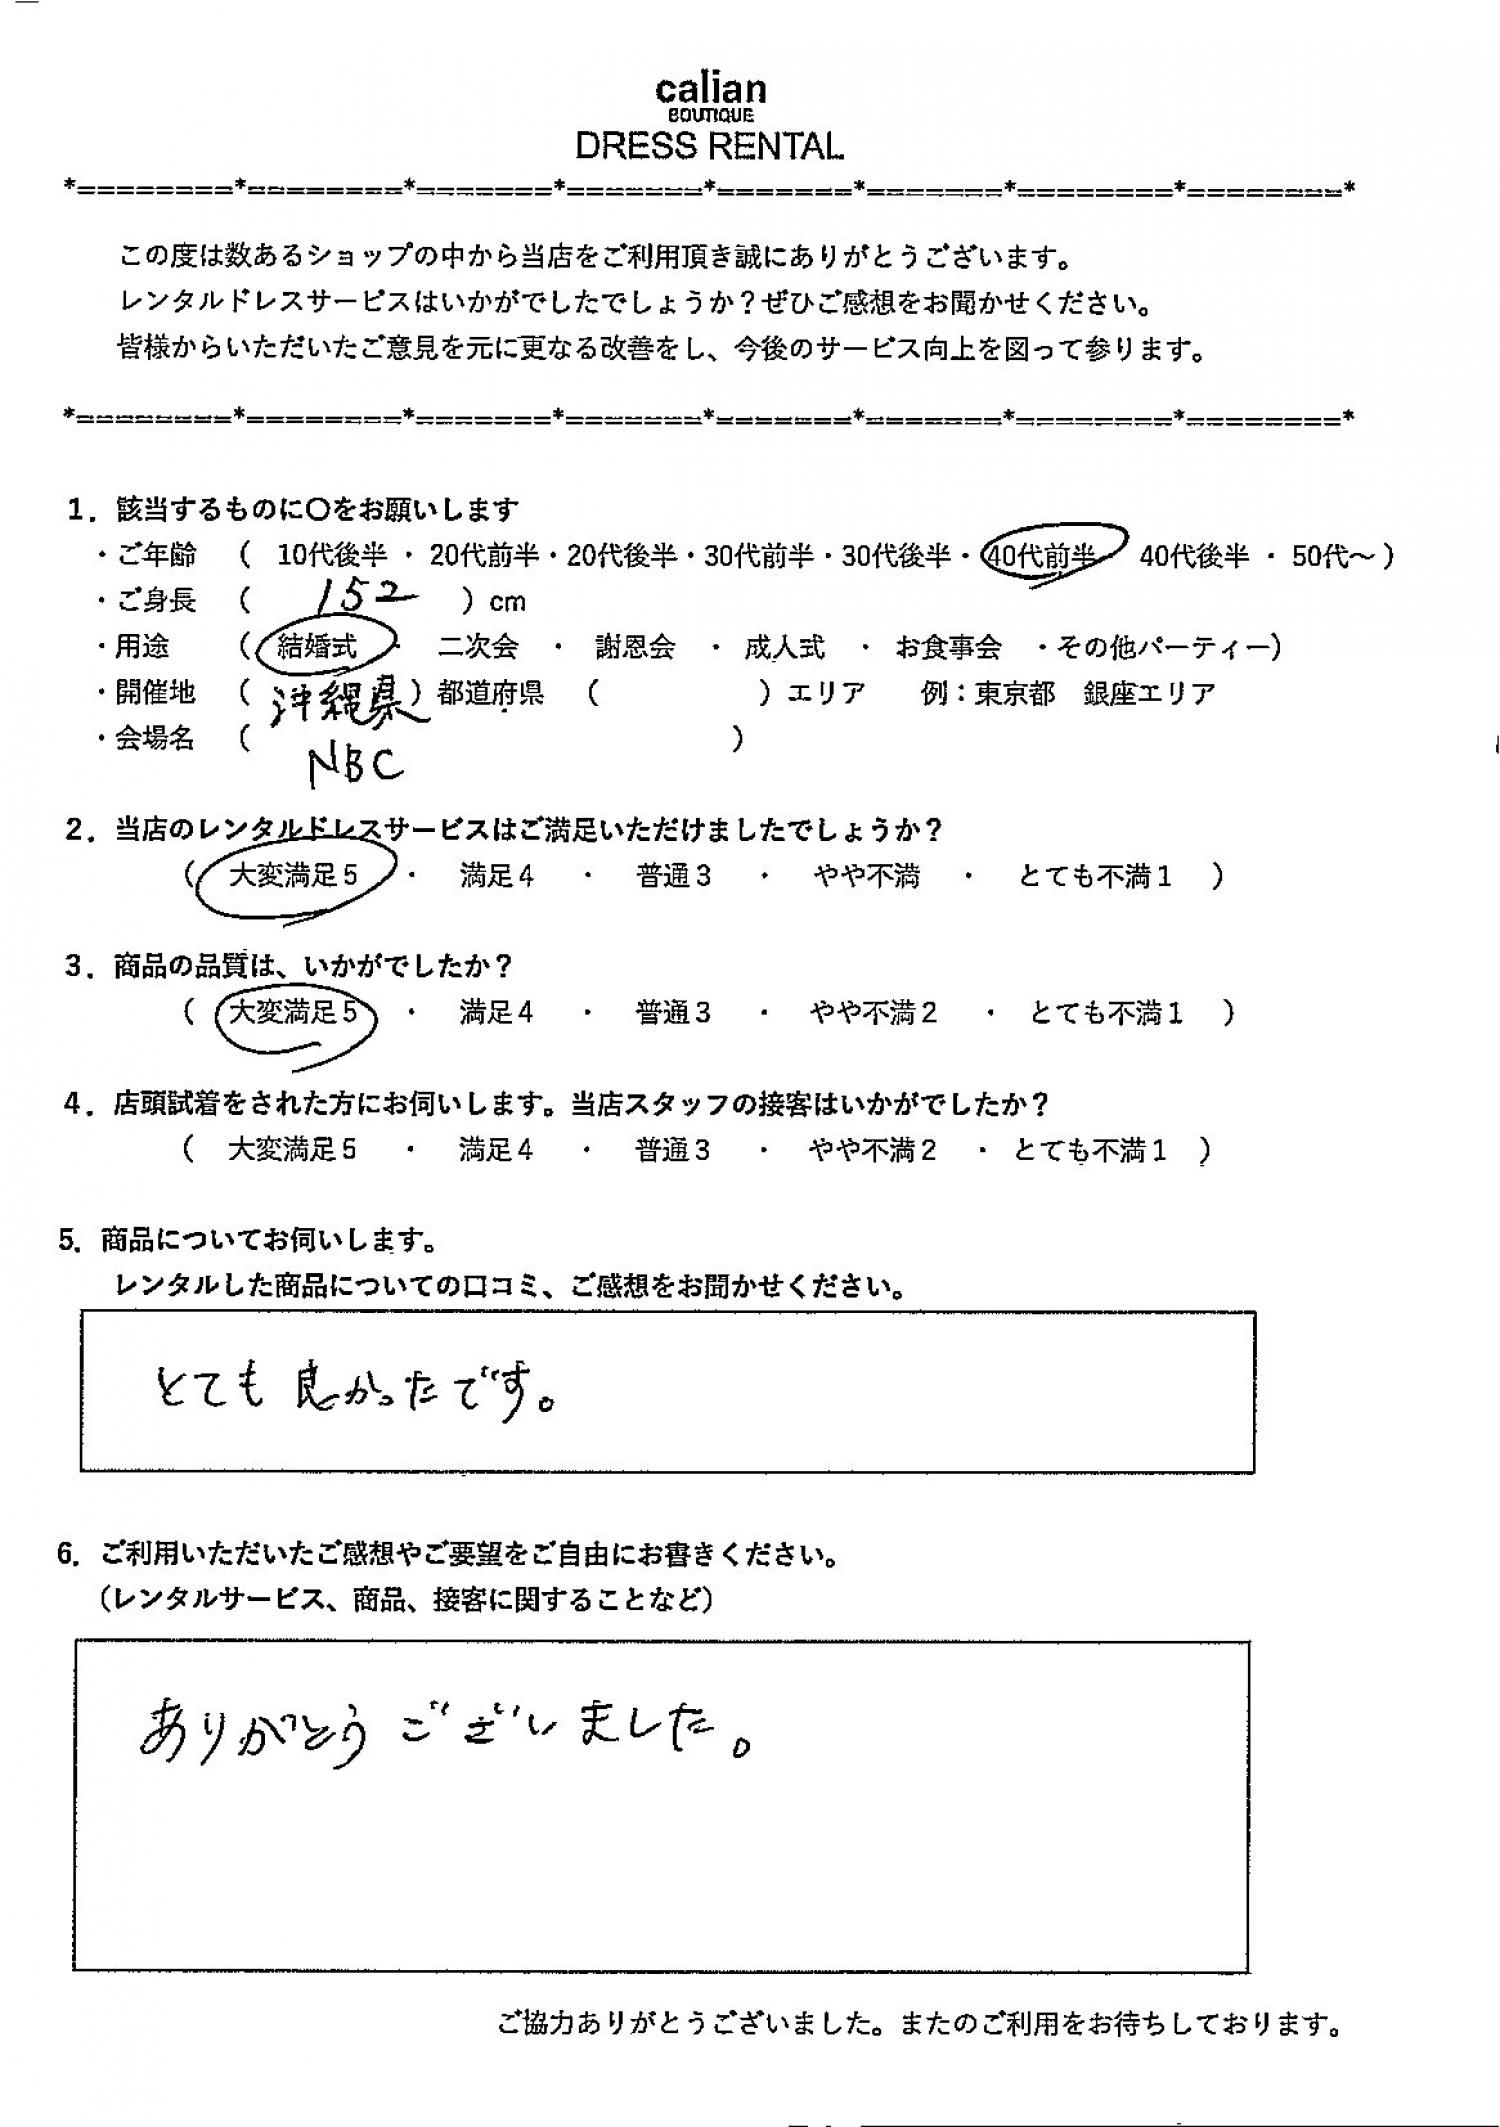 calian
BOUTIQUE
DRESS RENTAL
*========*========*=======*=======*=======*=======*========*========*
この度は数あるショップの中から当店をご利用頂き誠にありがとうございます。
レンタルドレスサービスはいかがでしたでしょうか？ぜひご感想をお聞かせください。
皆様からいただいたご意見を元に更なる改善をし、今後のサービス向上を図って参ります。
*========*========*=======*=======*=======*=======*========*========*
1．該当するものに〇をお願いします
・ご年齢 （ 10代後半 ・ 20代前半・20代後半・30代前半・30代後半・40代前半 40代後半 ・ 50代～ ）
・ご身長 （ 152 ）cm
・用途 （ 結婚式 ・ 二次会 ・ 謝恩会 ・ 成人式 ・ お食事会 ・その他パーティー）
・開催地 （ 沖縄県 ）都道府県 （ ）エリア 例：東京都 銀座エリア
・会場名 （ ）
NBC
2．当店のレンタルドレスサービスはご満足いただけましたでしょうか？
（ 大変満足５ ・ 満足４ ・ 普通３ ・ やや不満 ・ とても不満１ ）
3．商品の品質は、いかがでしたか？
（ 大変満足５ ・ 満足４ ・ 普通３ ・ やや不満２ ・ とても不満１ ）
4．店頭試着をされた方にお伺いします。当店スタッフの接客はいかがでしたか？
（ 大変満足５ ・ 満足４ ・ 普通３ ・ やや不満２ ・ とても不満１ ）
5．商品についてお伺いします。
レンタルした商品についての口コミ、ご感想をお聞かせください。
とても良かったです。
6．ご利用いただいたご感想やご要望をご自由にお書きください。
（レンタルサービス、商品、接客に関することなど）
ありがとうございました。
ご協力ありがとうございました。またのご利用をお待ちしております。